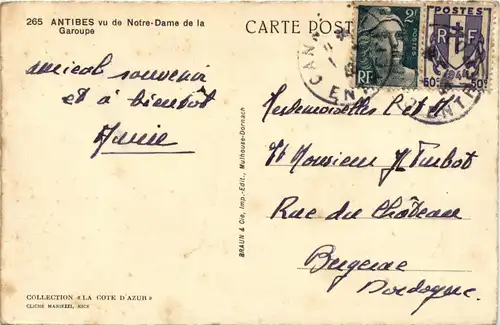 265 ANTIBES vu de Notre-Dame de la
Garoupe
CARTE POST
2F
RF
POSTES
RF
60c 60c
CANN
EN
ENT
amical souvenir
et à bientôt
Annie
Mesdemoiselles
Et Monsieur
Rue du Château
Bergerac
Dordogne
BRAUN & Cie, Imp.-Edit., Mulhouse-Dornach
COLLECTION « LA COTE D'AZUR »
CLICHÉ MARINZZI, NICE